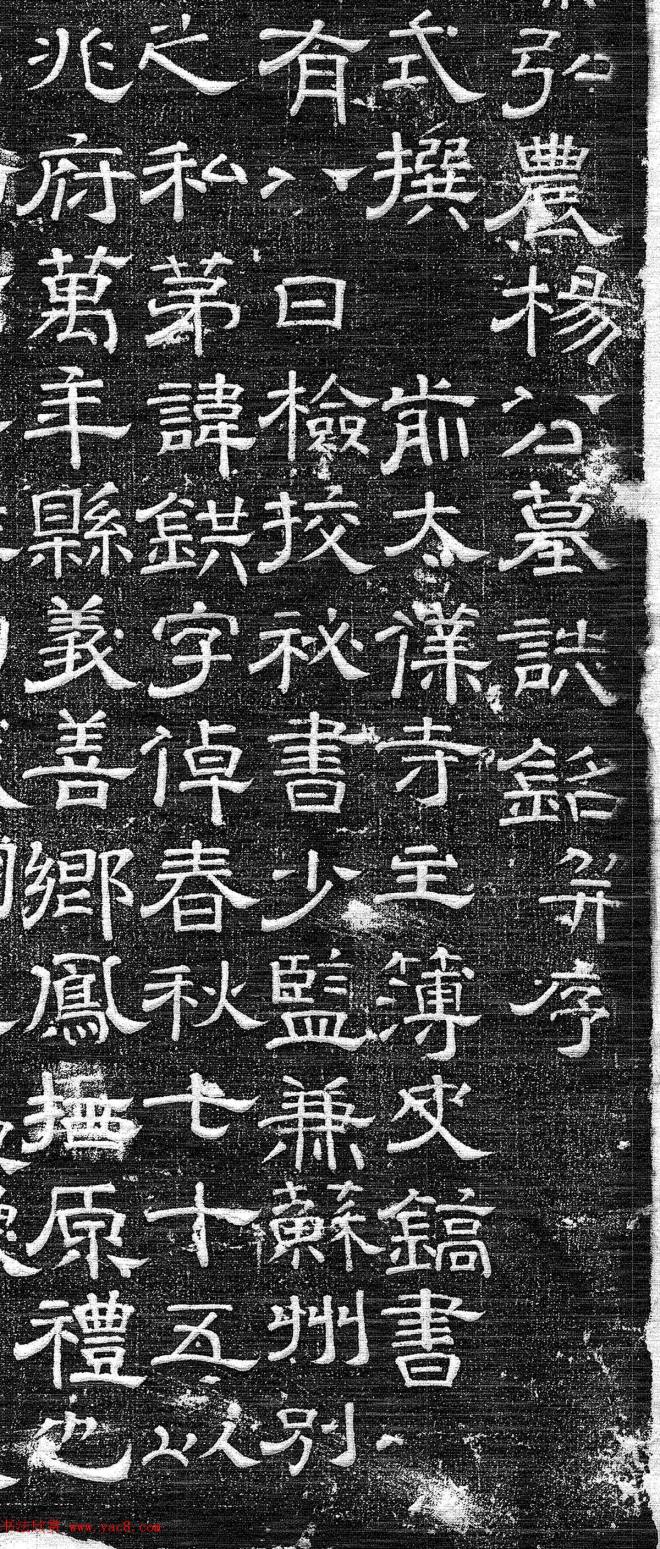 弘農楊公墓誌銘并序
式撰 前太僕寺主簿史鎬書
有八曰檢挍祕書少監兼蘇州別
之私第諱鉷字倬春秋七十五以
兆府萬年縣義善鄉鳳栖原禮也
www.yac8.com